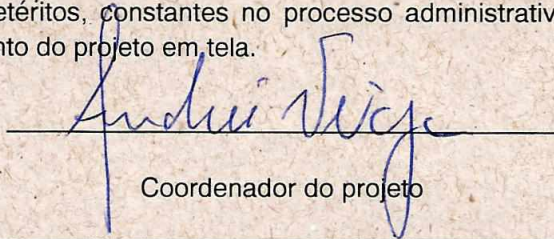 etéritos, constantes no processo administrativ
nto do projeto em tela.
Andrei Veiga
Coordenador do projeto